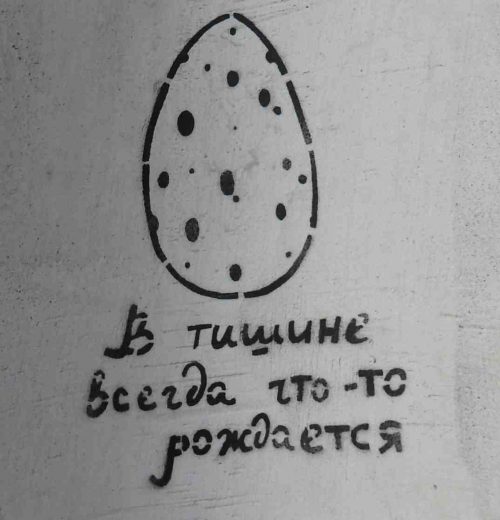 В тишине
всегда что-то
рождается